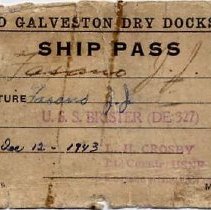 O GALVESTON DRY DOCKS
SHIP PASS
Fasano J. J.
TURE Fasano J J
U. S. S. BRISTER (DE 327)
Dec 12 - 1943 L. H. CROSBY
M